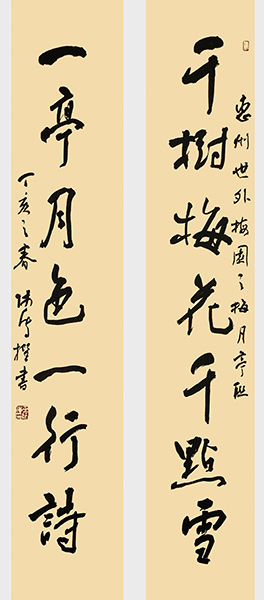 惠州世外梅園之梅月亭联
千樹梅花千點雪
一亭月色一行詩
丁亥之春 撰書